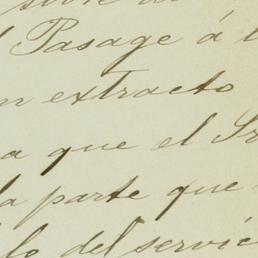 Pasage á
extracto
a que el Sr
la parte que
lo del servic